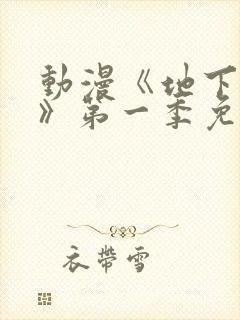 動漫《地下
》第一季免
衣帶雪